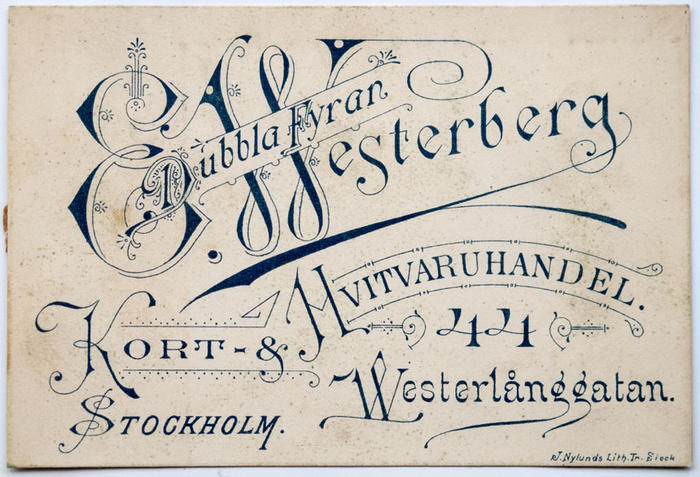 E. Westerberg
Dubbla Fyran
Kort- & Hvitvaruhandel.
44
Westerlånggatan.
Stockholm.
J. Nylunds Lith. Tr.